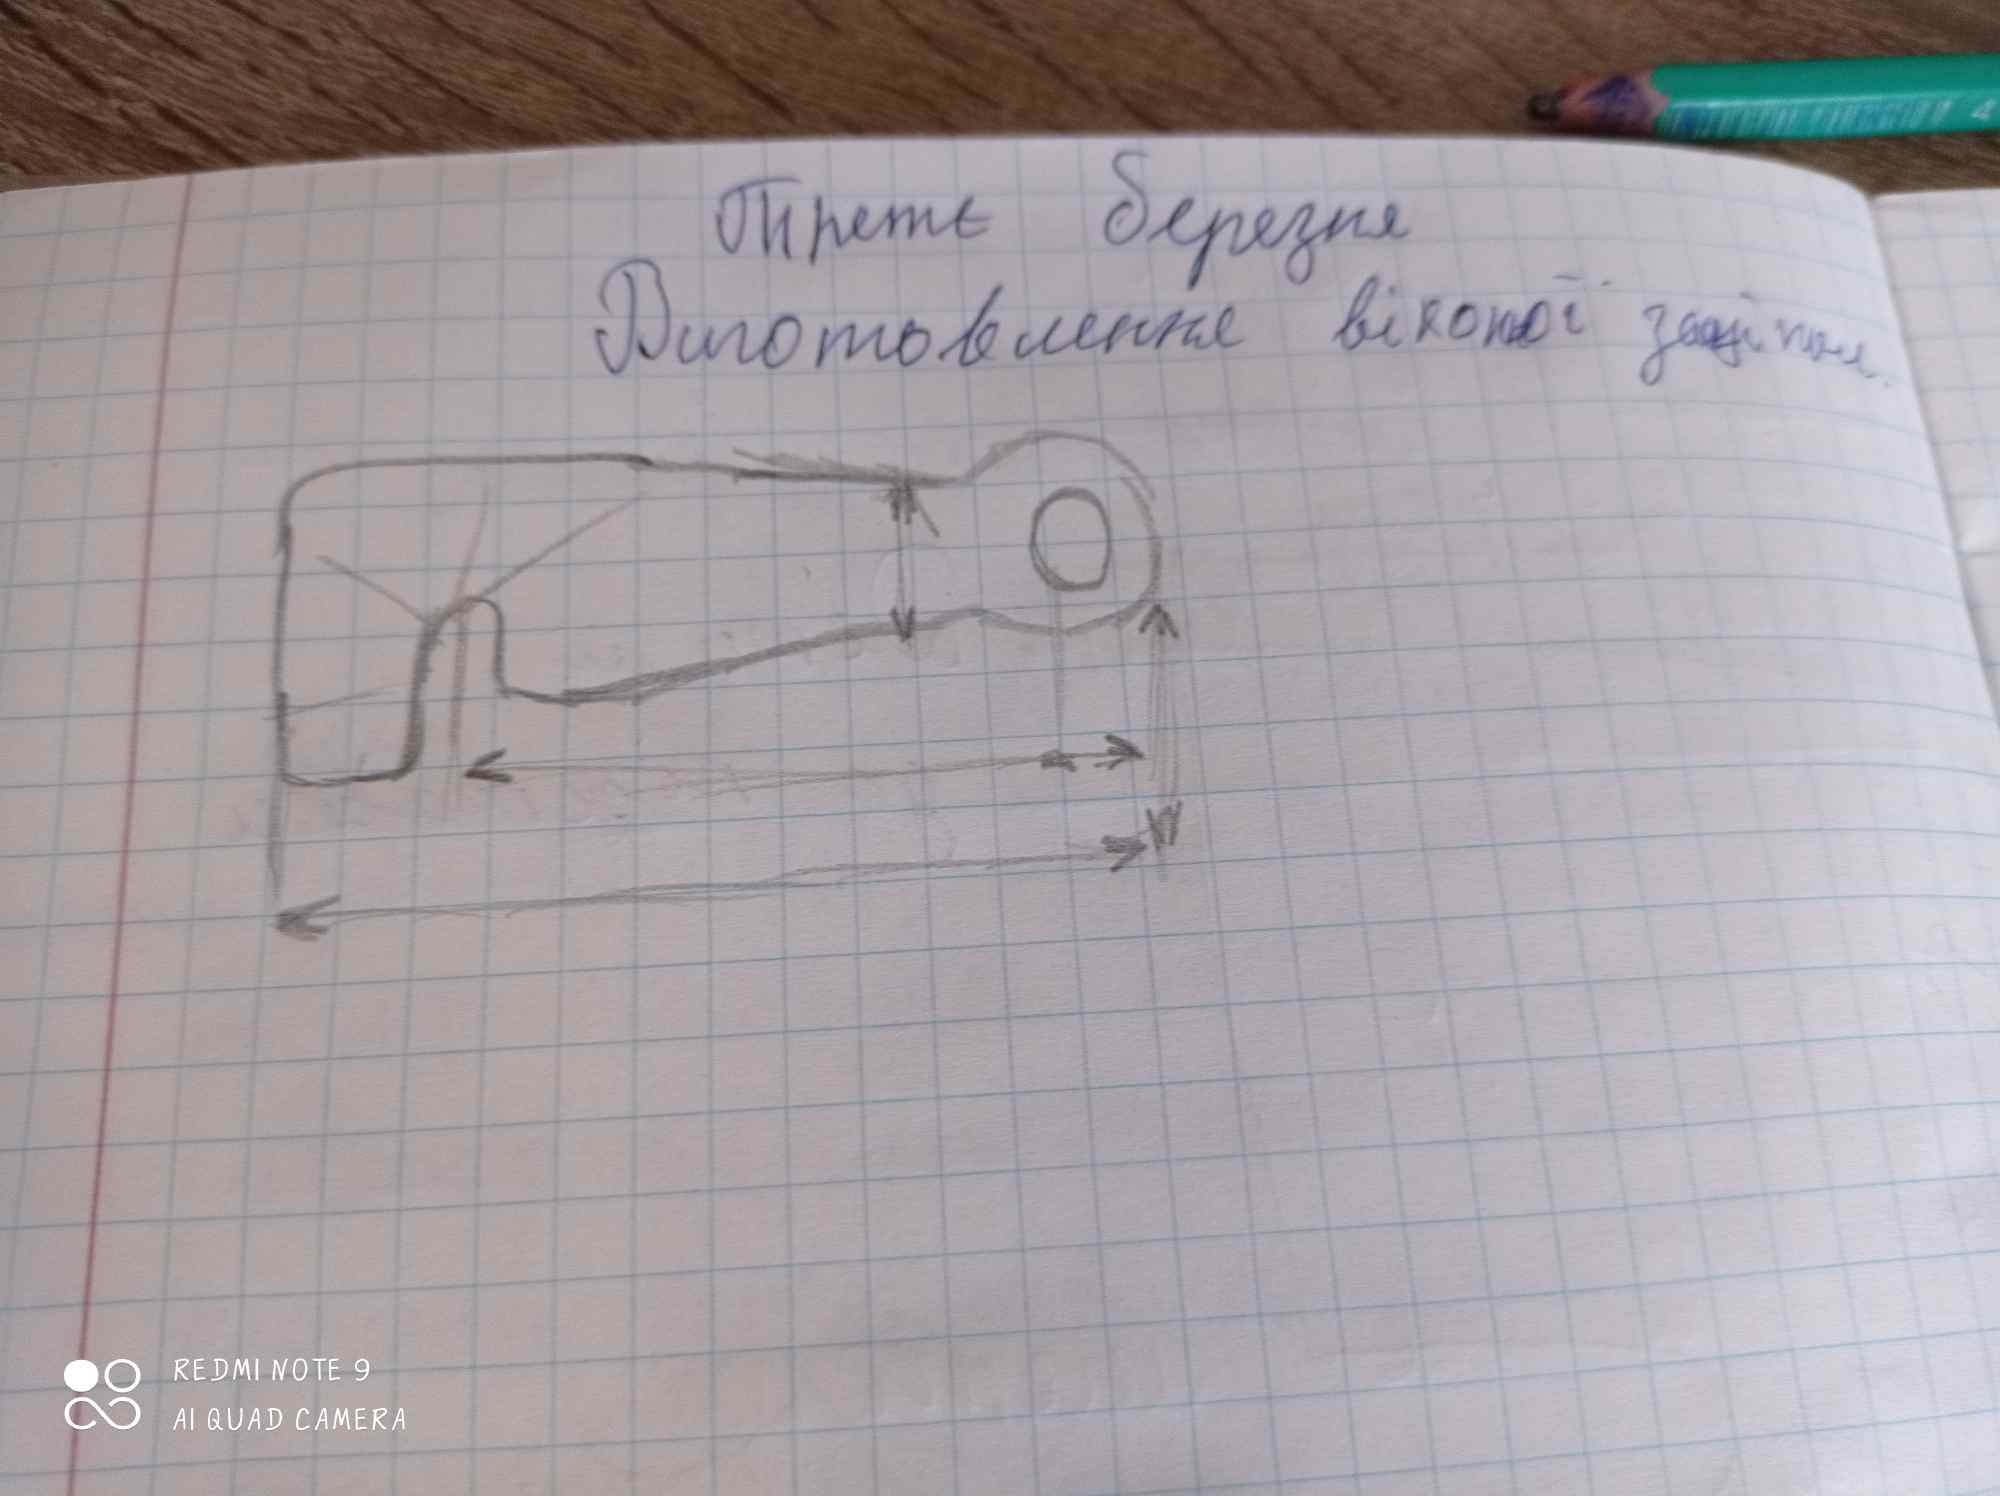 Третє березня
Виготовлення віконої защіпки.
REDMI NOTE 9
AI QUAD CAMERA